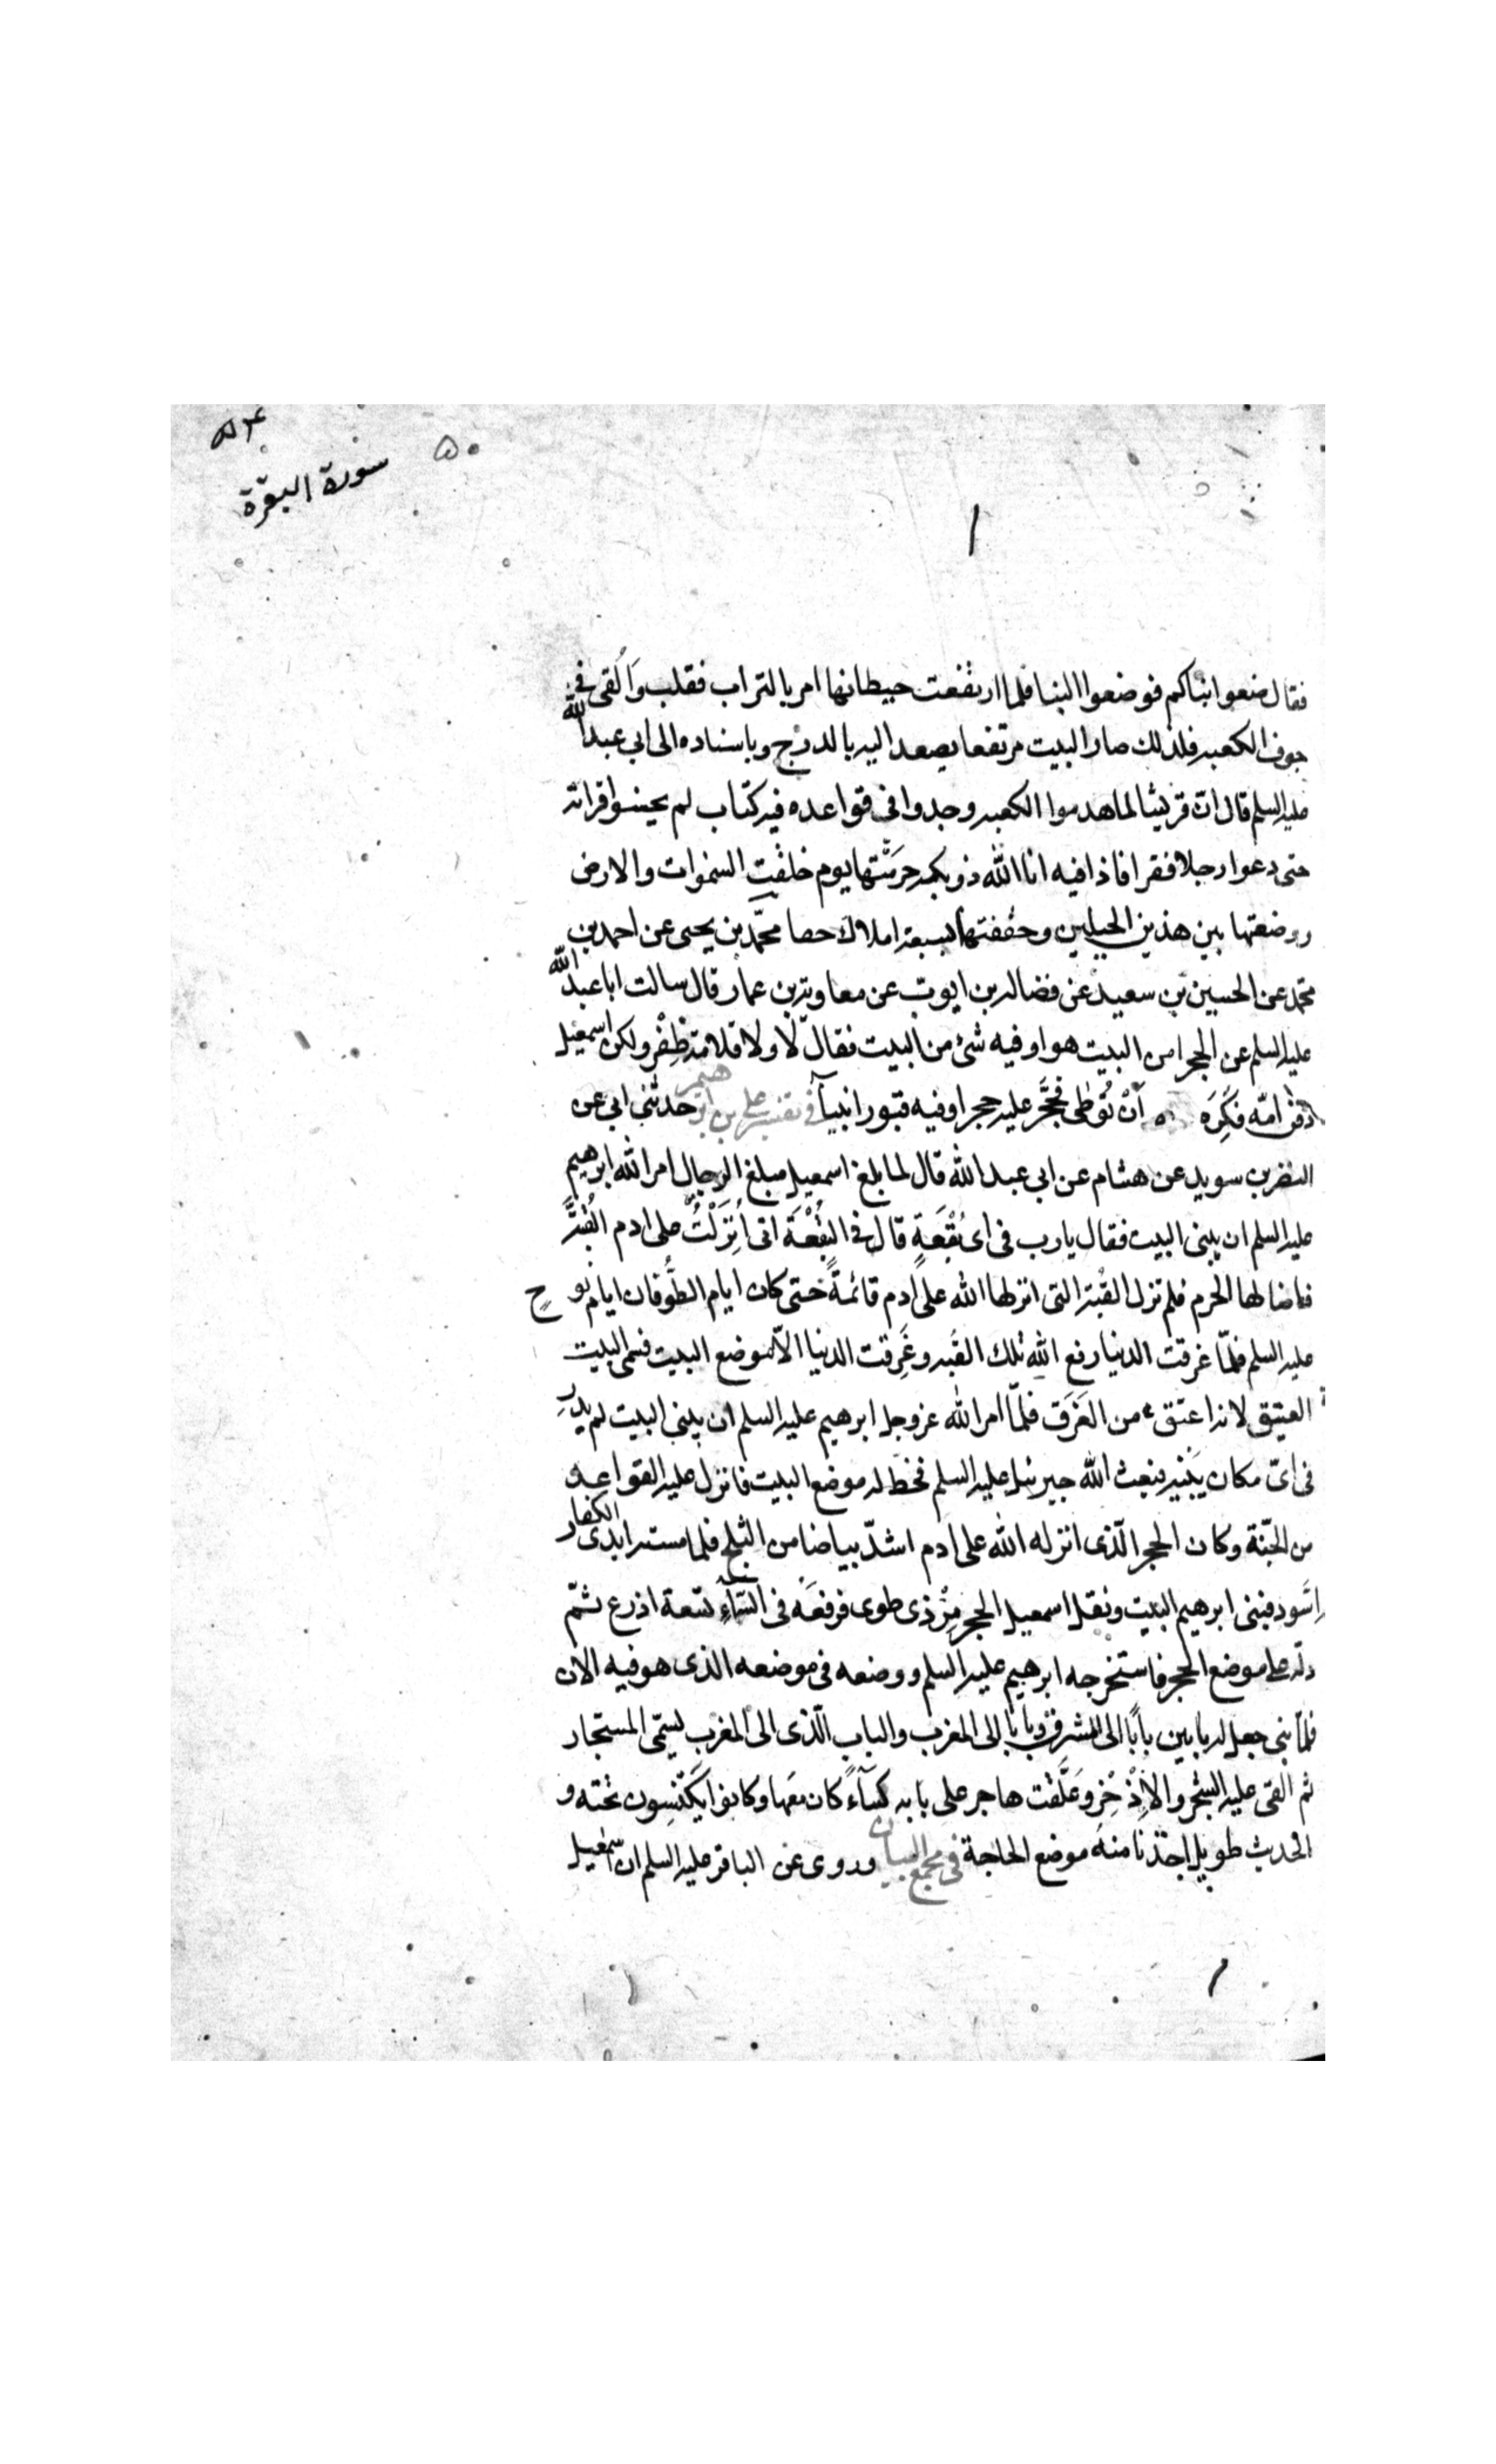 ٥٣
سورة البقرة
٥٠
فقال ضعوا ابناكم فوضعوا البنا فلما ارتفعت حيطانها امر بالتراب فقلب وَاُلقى فى
جوف الكعبه فلذلك صار البيت مرتفعا يصعد اليه بالدرج وباسناده الى ابى عبد الله
عليه السلم قال ان قريشا لما هدموا الكعبه وجدوا فى قواعده فيه كتاب لم يحسنوا قرائته
حتى دعوا رجلا فقرا فاذا فيه انا الله ذو بكه حرمتها يوم خلقت السموات والارض
ووضعتها بين هذين الجبلين وحففتها بسبعة املاك حصا محمّد بن يحيى عن احمد بن
محمد عن الحسين بن سعيد عن فضاله بن ايوب عن معاوية بن عمار قال سالت ابا عبد الله
عليه السلم عن الحجر امن البيت هو او فيه شئ من البيت فقال لا ولا قلامة ظِفْر ولكن اسمعيل
دفن امّه فكَرِهَ اَنْ تُوطى فحَجَّر عليه حجرا وفيه قبور انبيآ فى تفسير على بن ابرهيم حدثنى ابى عن
النضر بن سويد عن هشام عن ابى عبد الله قال لما بلغ اسمعيل مبلغ الرجال امر الله ابرهيم
عليه السلم ان يبنى البيت فقال يارب فى اى بُقْعَةٍ قال فى البُقْعَة اتى اُنْزَلْتُ على ادم القُبَّة
فاضا لها الحرم فلم تزل القُبّة التى انزلها الله على ادم قائمةً حتى كان ايام الطُّوفان ايام نوحٍ
عليه السلم فلمّا غرقت الدنيا رفع الله تلك القُبه وغَرِقت الدنيا الاّ موضع البيت فسمى البيت
العتيق لانه اعتق من الغَرَق فلمّا امر الله عزوجل ابرهيم عليه السلم ان يبنى البيت لم يدرِ
فى اىّ مكان يَبْنيه فبعث الله جبرئيل عليه السلم فخطّ له موضع البيت فانزل عليه القواعد
من الجنّة وكان الحجر الّذى انزله الله على ادم اشدّ بياضا من الثلج فلما مسته ايدى الكفار
اِسَّود فبنى ابرهيم البيت ونقل اسمعيل الحجر مِنْ ذى طوى فرفعَه فى السَّمآءِ تسعة اذرع ثمّ
دلّه على موضع الحجر فاستخرجه ابرهيم عليه السلم ووضعه فى موضعه الذى هو فيه الان
فلمّا بنى جعل له بابين بابًا الى المشرق وبابًا الى المغرب والباب الّذى الى المغرب يسمّى المستجار
ثم القى عليه الشجر والاِذْخِر وعَلّقت هاجر على بابه كسآءً كان معَها وكانوا يَكْنِسون تحته و
الحديث طويل اخذنا منه موضع الحاجة فى مجمع البيان وروى عن الباقر عليه السلم ان اسمعيل